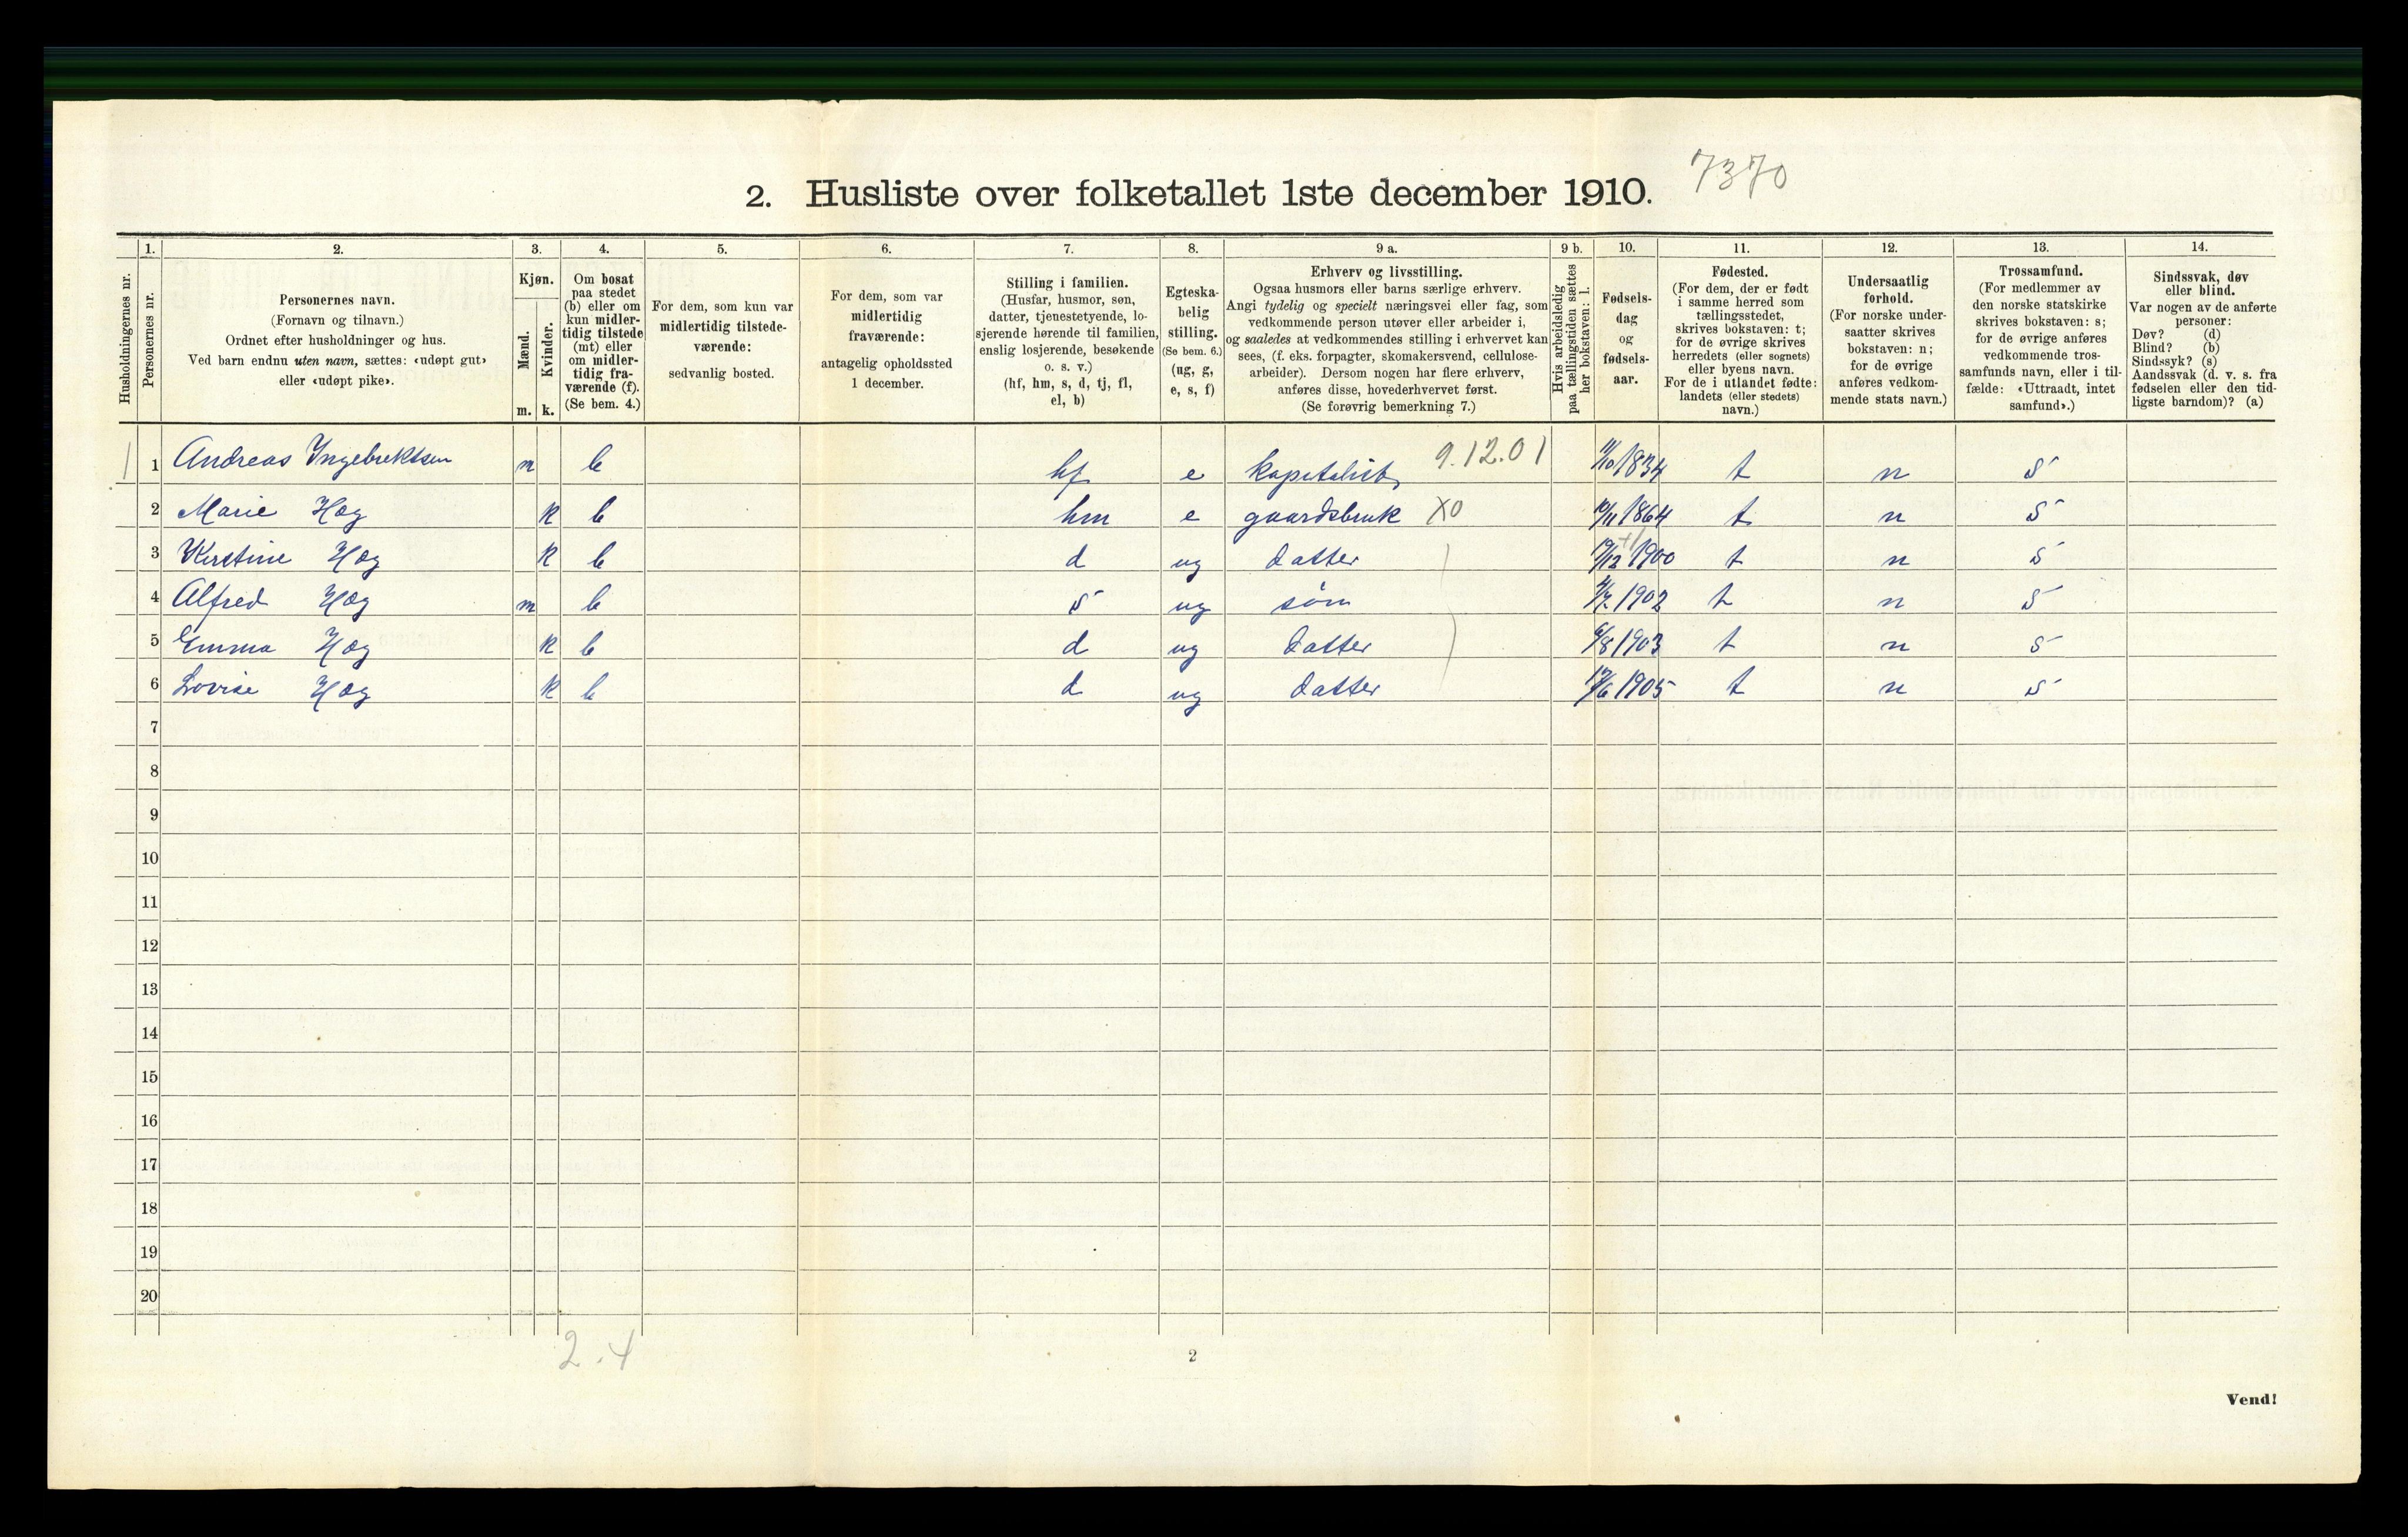 7370
2. Husliste over folketallet 1ste december 1910.
Husholdningernes nr.
1.
Personernes nr.
2.
Personernes navn.
(Fornavn og tilnavn.)
Ordnet efter husholdninger og hus.
Ved barn endnu uten navn, sættes: «udøpt gut»
eller «udøpt pike».
3.
Kjøn.
Mænd.
Kvinder.
m. k.
4.
Om bosat
paa stedet
(b) eller om
kun midler-
tidig tilstede
(mt) eller
om midler-
tidig fra-
værende (f).
(Se bem. 4.)
5.
For dem, som kun var
midlertidig tilstede-
værende:
sedvanlig bosted.
6.
For dem, som var
midlertidig
fraværende:
antagelig opholdssted
1 december.
7.
Stilling i familien.
(Husfar, husmor, søn,
datter, tjenestetyende, lo-
sjerende hørende til familien,
enslig losjerende, besøkende
o. s. v.)
(hf, hm, s, d, tj, fl,
el, b)
8.
Egteska-
belig
stilling.
(Se bem. 6.)
(ug, g,
e, s, f)
9 a.
Erhverv og livsstilling.
Ogsaa husmors eller barns særlige erhverv.
Angi tydelig og specielt næringsvei eller fag, som
vedkommende person utøver eller arbeider i,
og saaledes at vedkommendes stilling i erhvervet kan
sees, (f. eks. forpagter, skomakersvend, cellulose-
arbeider). Dersom nogen har flere erhverv,
anføres disse, hovederhvervet først.
(Se forøvrig bemerkning 7.)
9 b.
Hvis arbeidsledig
paa tællingstiden sættes
her bokstaven: l.
10.
Fødsels-
dag
og
fødsels-
aar.
11.
Fødested.
(For dem, der er født
i samme herred som
tællingsstedet,
skrives bokstaven: t;
for de øvrige skrives
herredets (eller sognets)
eller byens navn.
For de i utlandet fødte:
landets (eller stedets)
navn.)
12.
Undersaatlig
forhold.
(For norske under-
saatter skrives
bokstaven: n;
for de øvrige
anføres vedkom-
mende stats navn.)
13.
Trossamfund.
(For medlemmer av
den norske statskirke
skrives bokstaven: s;
for de øvrige anføres
vedkommende tros-
samfunds navn, eller i til-
fælde: «Uttraadt, intet
samfund».)
14.
Sindssvak, døv
eller blind.
Var nogen av de anførte
personer:
Døv? (d)
Blind? (b)
Sindssyk? (s)
Aandssvak (d. v. s. fra
fødselen eller den tid-
ligste barndom)? (a)
1 1 Andreas Ingebrektsen m b hf e kapitalist 9.12.01 11/10 1834 t n s
2 Marie Hæg k b hm e gaardsbruk X0 10/11 1864 t n s
3 Kirstine Hæg k b d ug datter 19/12 1900 t n s
4 Alfred Hæg m b s ug søn 1902 t n s
5 Emma Hæg k b d ug datter 6/8 1903 t n s
6 Lovise Hæg k b d ug datter 1905 t n s
7
8
9
10
11
12
13
14
15
16
17
18
19
20
2.4
2
Vend!